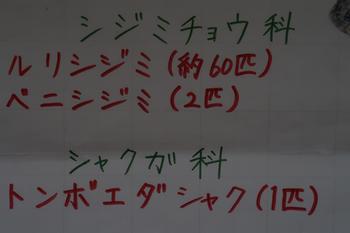 シジミチョウ科
ルリシジミ(約60匹)
ベニシジミ(2匹)
シャクガ科
トンボエダシャク(1匹)